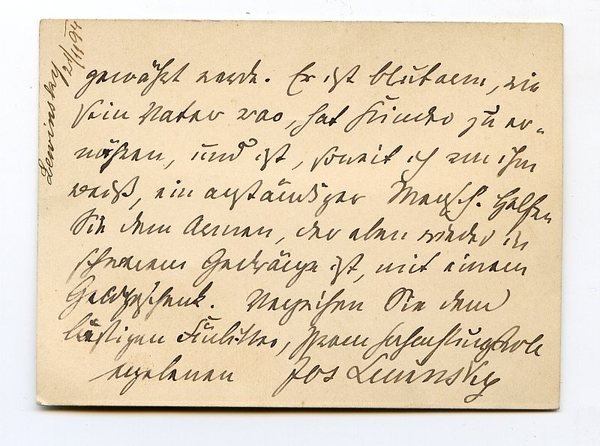 Lewinsky 25/11 94
gewährt werde. Er ist blutarm, wie
sein Vater war, hat Kinder zu er-
nähren, und ist, soweit ich von ihm
weiß, ein anständiger Mensch. Helfen
Sie dem Armen, der eben wieder in
schwerem Gedränge ist, mit einem
Geldgeschenk. Verzeihen Sie dem
lästigen Ihrem hochachtungsvoll
ergebenen Jos Lewinsky